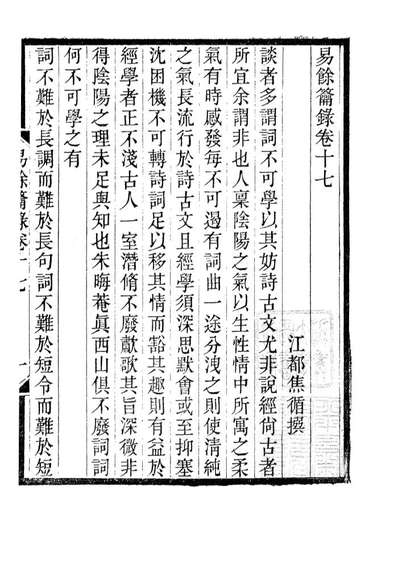 易餘籥錄卷十七
江都焦循撰
談者多謂詞不可學以其妨詩古文尤非說經尙古者
所宜余謂非也人稟陰陽之氣以生性情中所寓之柔
氣有時感發每不可遏有詞曲一途分洩之則使淸純
之氣長流行於詩古文且經學須深思默會或至抑塞
沈困機不可轉詩詞足以移其情而豁其趣則有益於
經學者正不淺古人一室潛脩不廢歗歌其旨深微非
得陰陽之理未足與知也朱晦菴眞西山俱不廢詞詞
何不可學之有
詞不難於長調而難於長句詞不難於短令而難於短
易餘籥錄卷十七
一